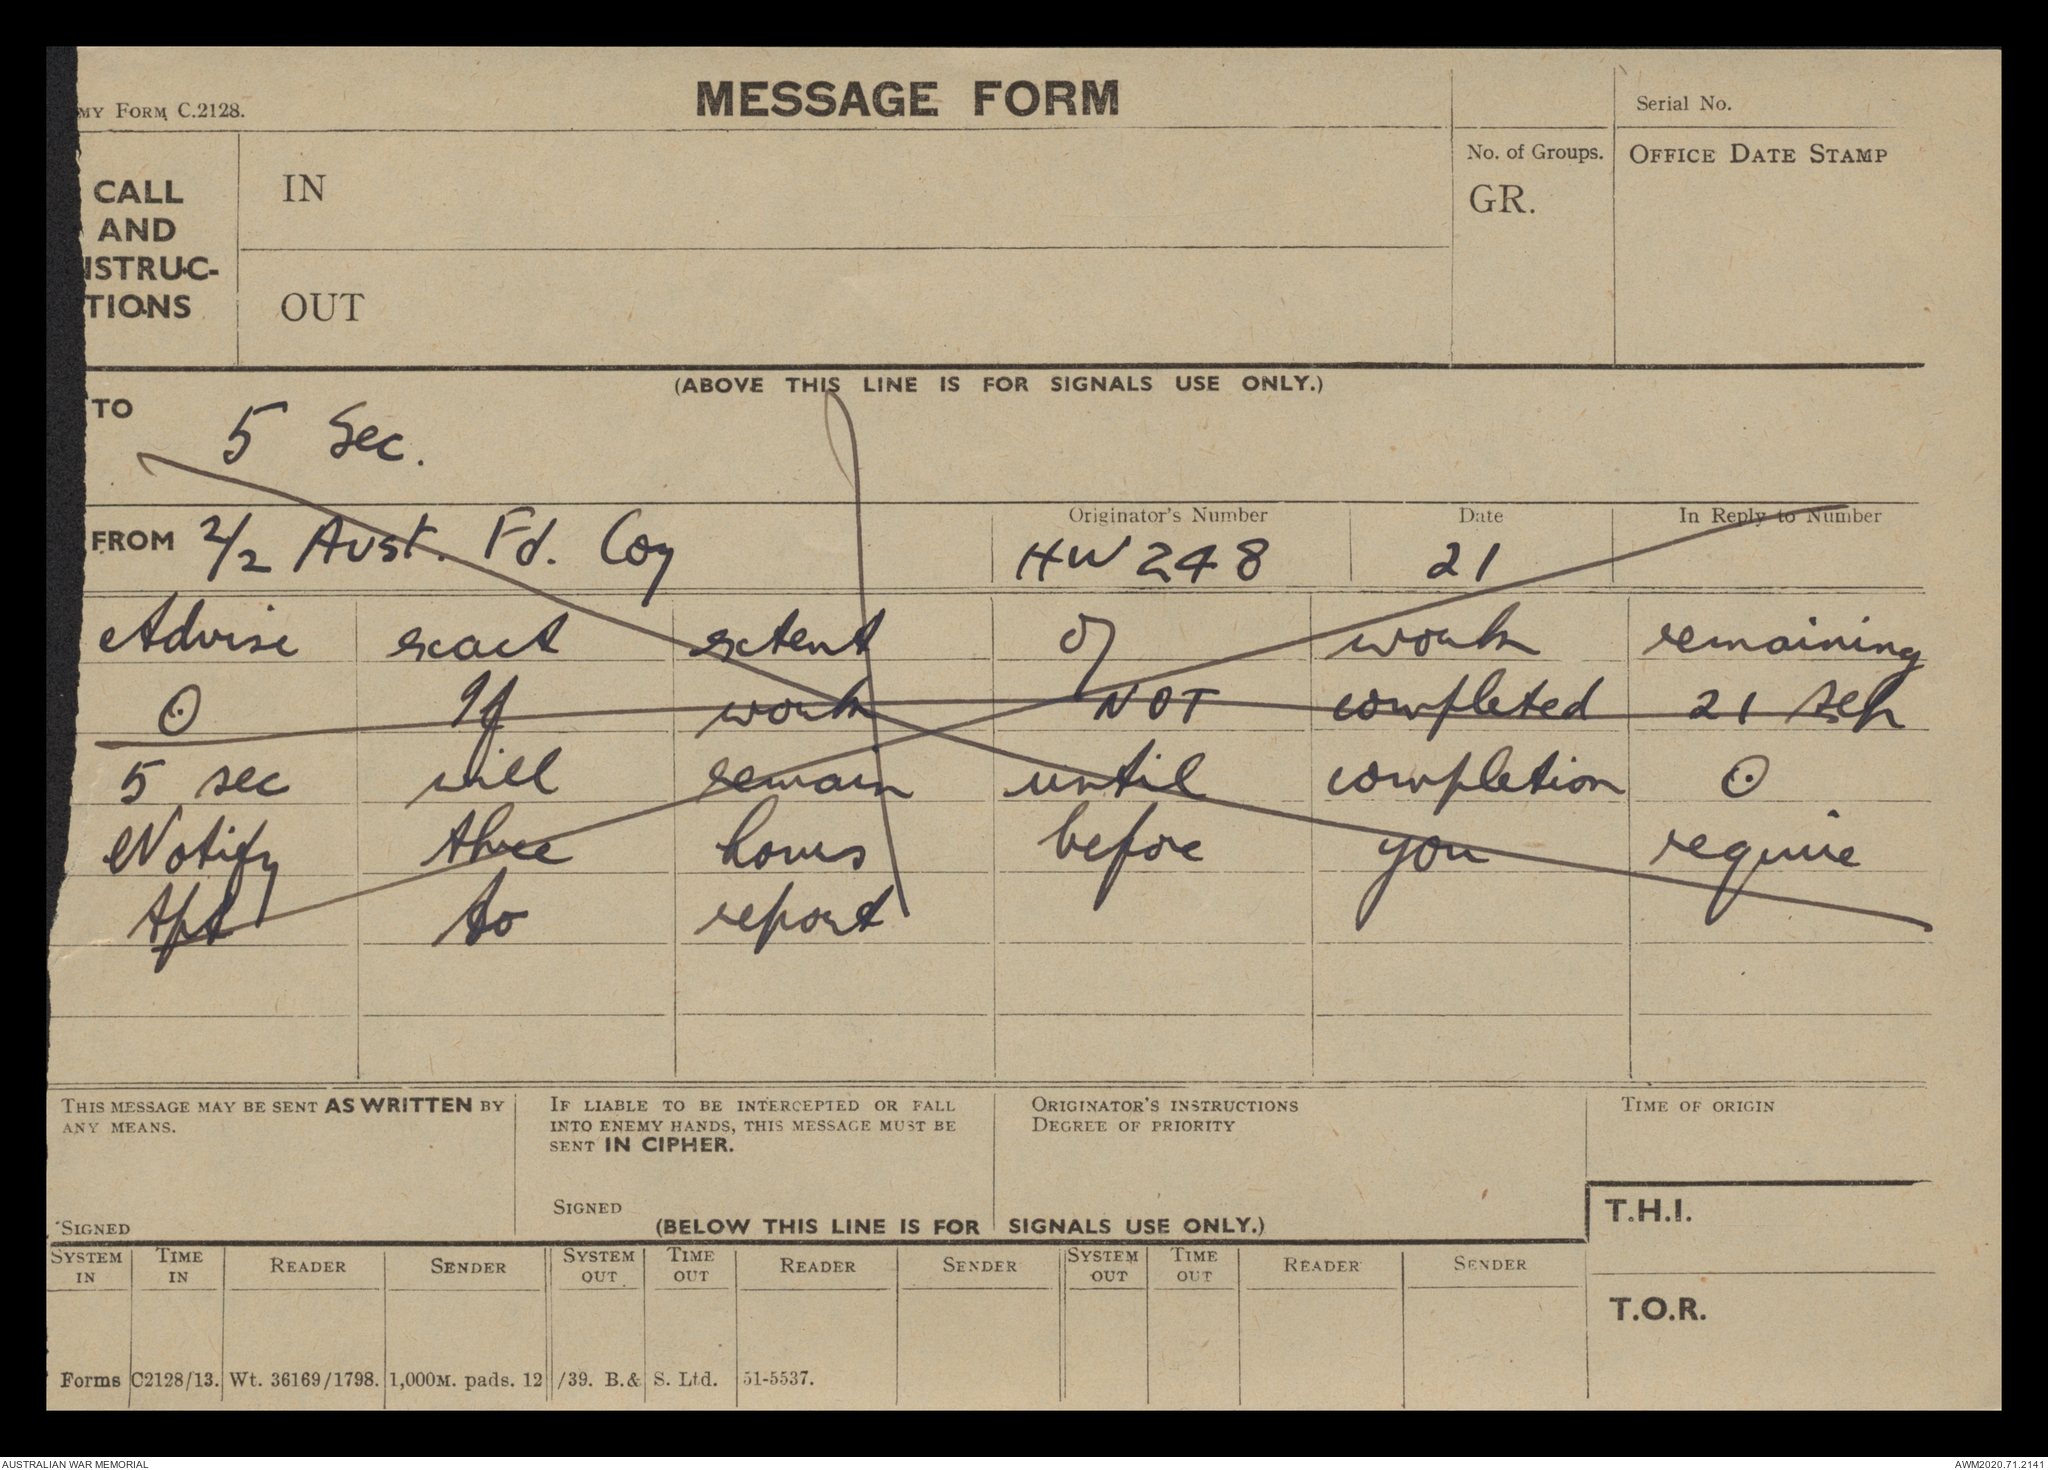 MY FORM C.2128.
MESSAGE FORM
Serial No.
CALL
AND
ISTRUC-
TIONS
IN
OUT
No. of Groups.
GR.
OFFICE DATE STAMP
(ABOVE THIS LINE IS FOR SIGNALS USE ONLY.)
TO 5 Sec.
FROM 2/2 Aust. Fd. Coy
Originator's Number
HW 248
Date
21
In Reply to Number
Advise exact extent of work remaining
⊙ If work NOT completed 21 Sep
5 sec will remain until completion ⊙
Notify three hours before you require
tpt to report
THIS MESSAGE MAY BE SENT AS WRITTEN BY
ANY MEANS.
SIGNED
IF LIABLE TO BE INTERCEPTED OR FALL
INTO ENEMY HANDS, THIS MESSAGE MUST BE
SENT IN CIPHER.
SIGNED
ORIGINATOR'S INSTRUCTIONS
DEGREE OF PRIORITY
TIME OF ORIGIN
T.H.I.
(BELOW THIS LINE IS FOR SIGNALS USE ONLY.)
SYSTEM IN TIME IN READER SENDER SYSTEM OUT TIME OUT READER SENDER SYSTEM OUT TIME OUT READER SENDER
T.O.R.
Forms C2128/13. Wt. 36169/1798. 1,000M. pads. 12/39. B.& S. Ltd. 51-5537.
AUSTRALIAN WAR MEMORIAL
AWM2020.71.2141